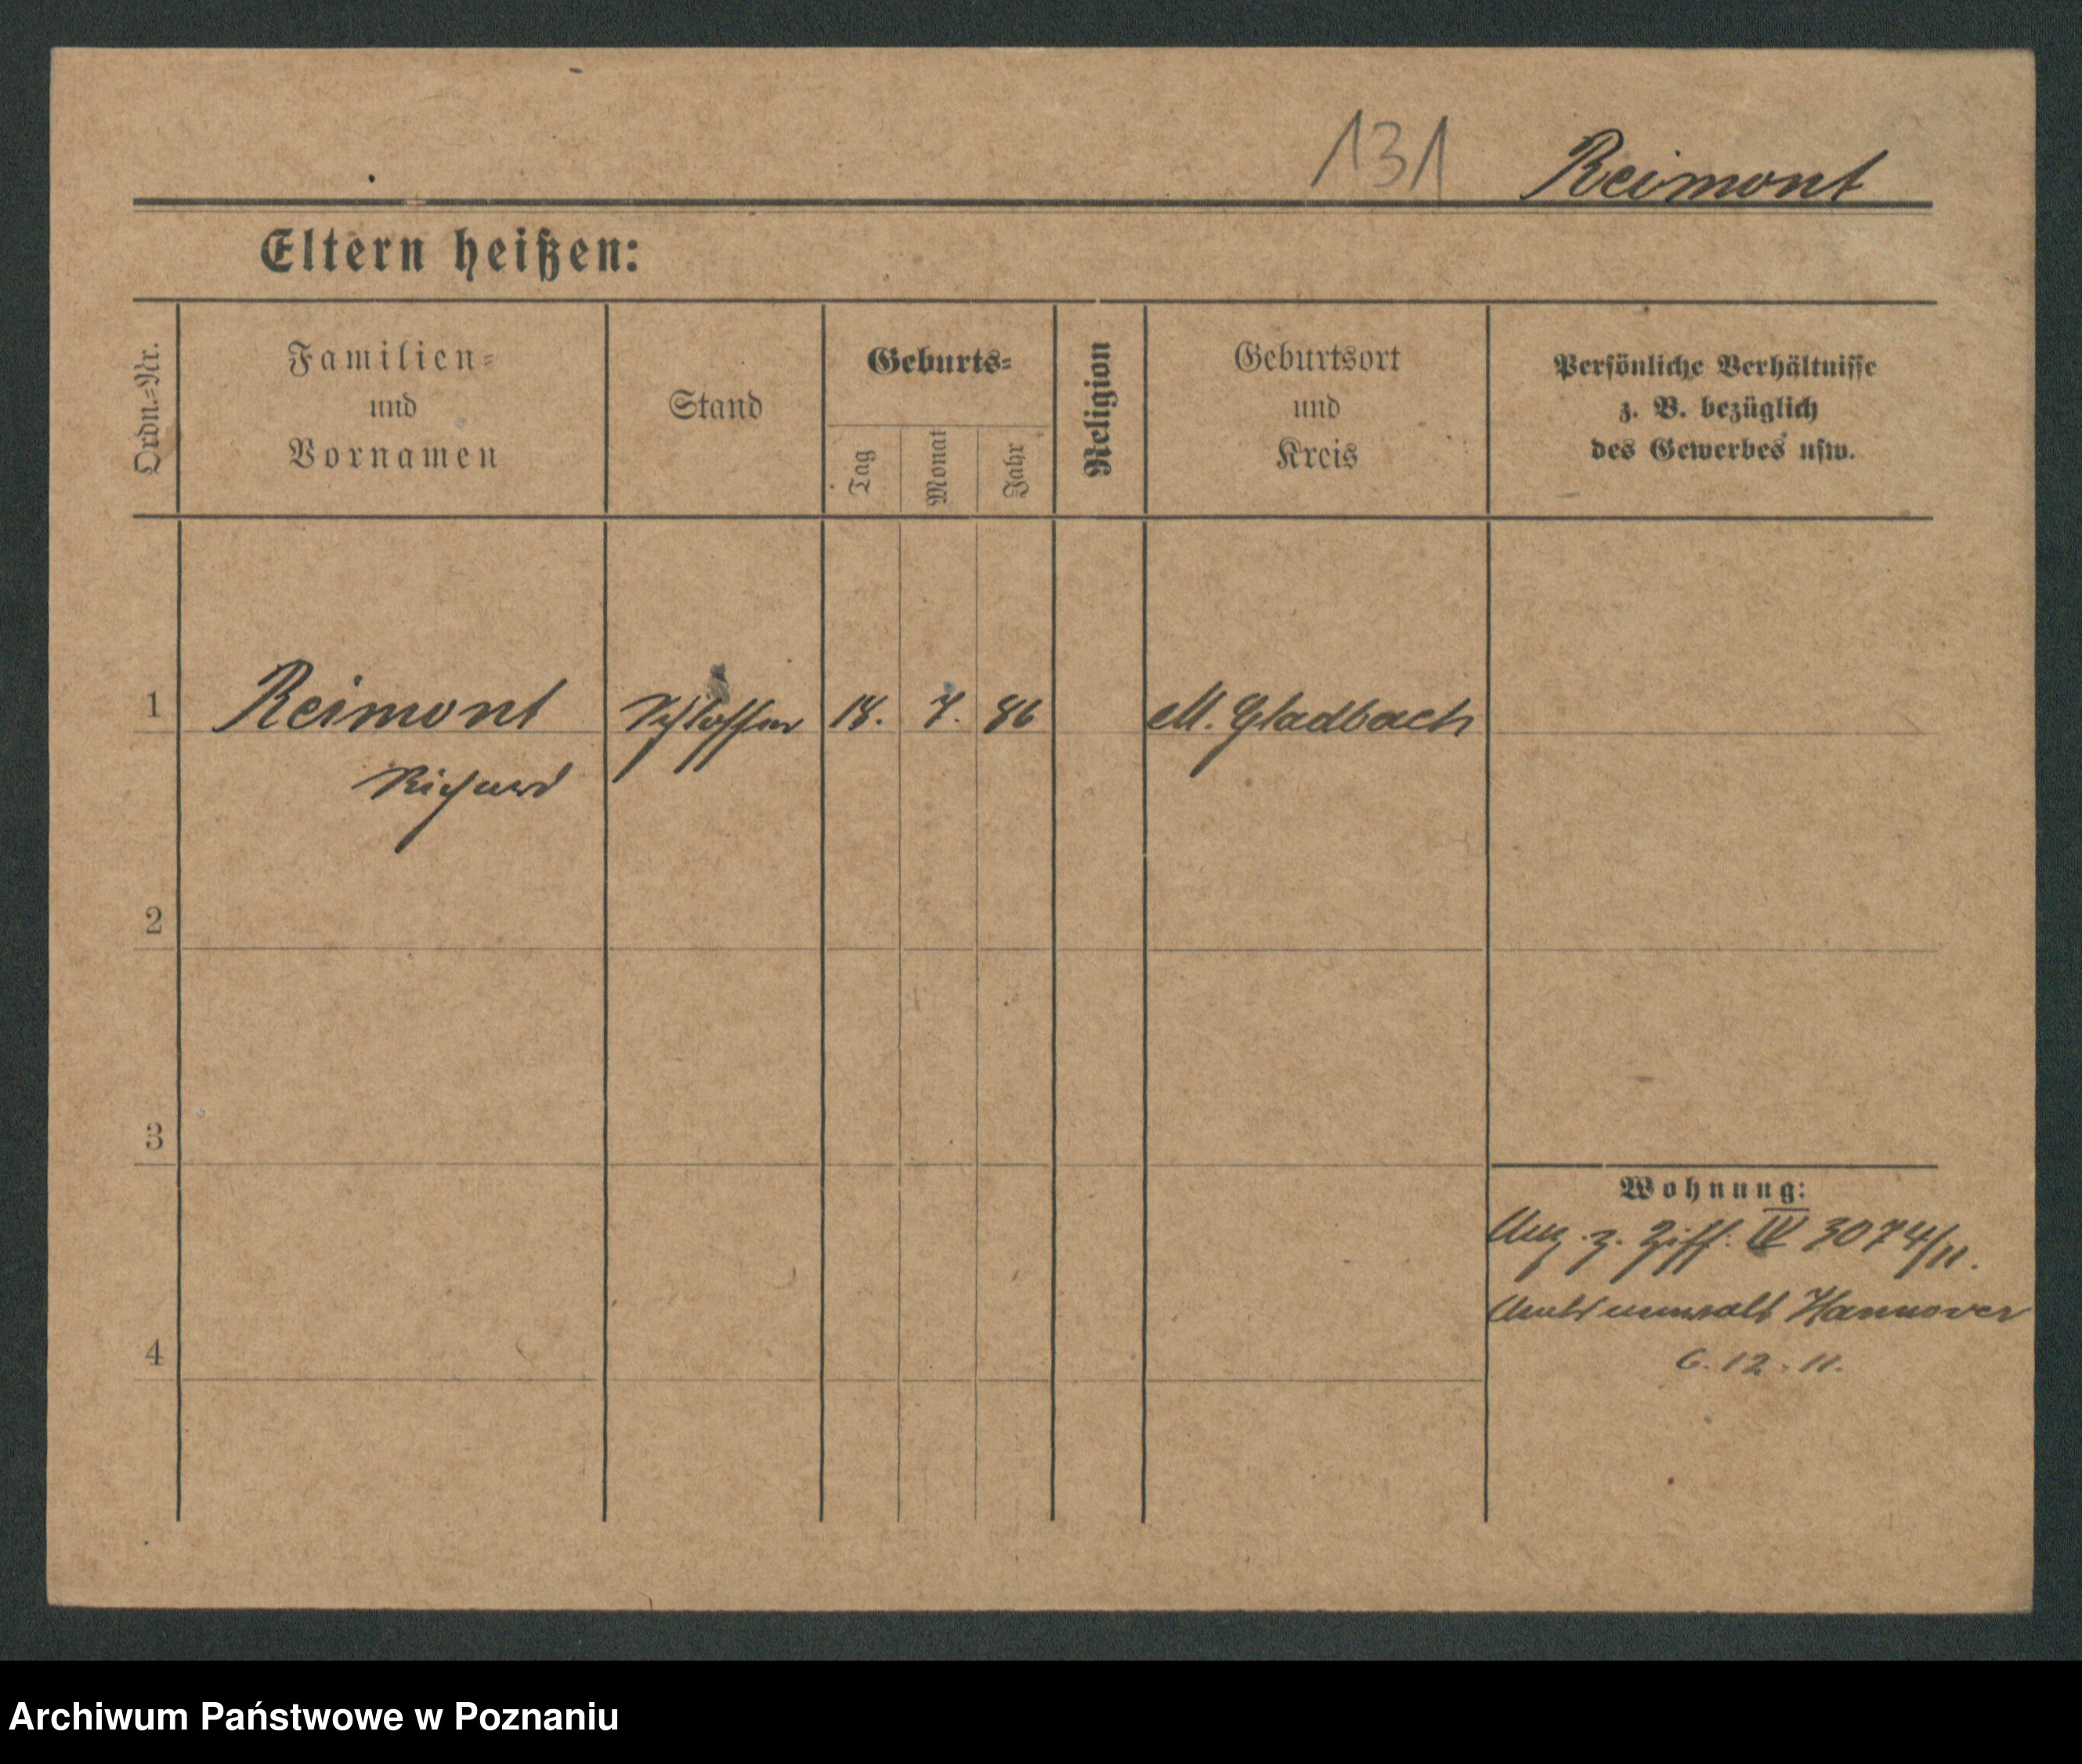 131 Reimont
Eltern heißen:
Ordn.-Nr.
Familien-
und
Vornamen
Stand
Geburts-
Tag
Monat
Jahr
Religion
Geburtsort
und
Kreis
Persönliche Verhältnisse
z. B. bezüglich
des Gewerbes usw.
1 Reimont Schlosser 18. 7. 86 M. Gladbach
Richard
2
3
4
Wohnung:
z. Ziff. IV 3074/11.
Amtsanwalt Hannover
6.12.11.
Archiwum Państwowe w Poznaniu